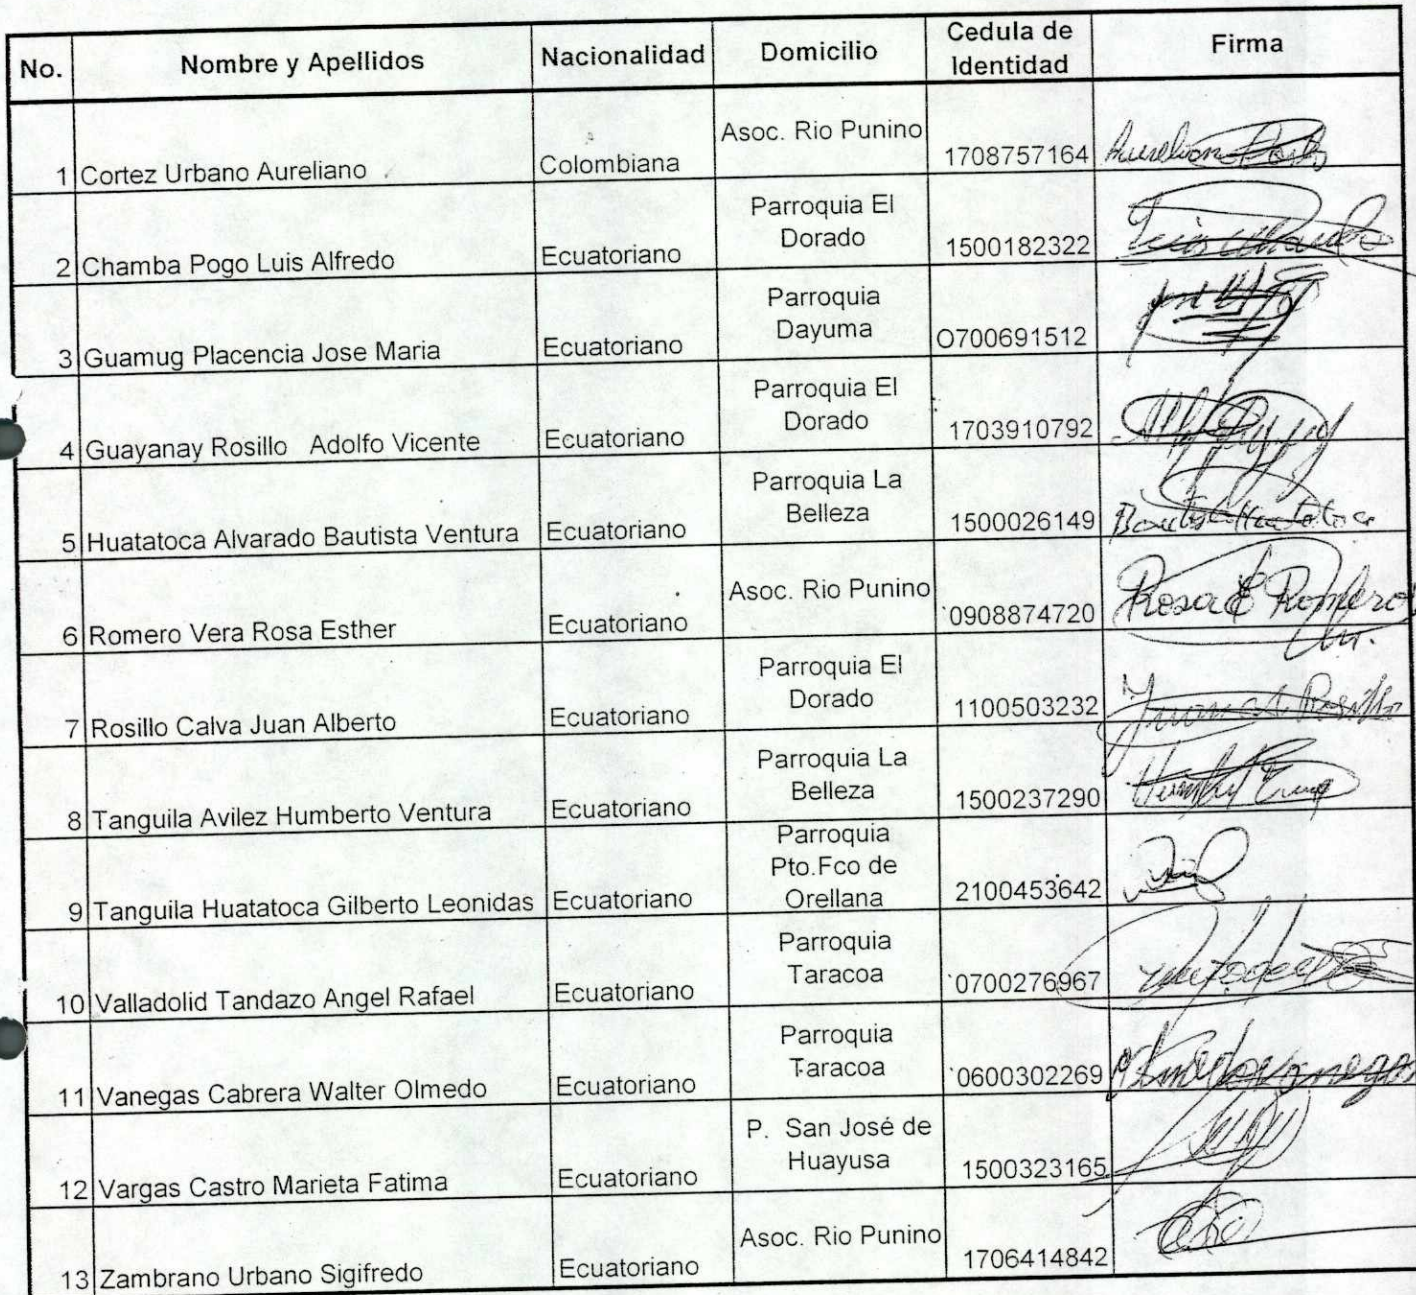 No. Nombre y Apellidos Nacionalidad Domicilio Cedula de Identidad Firma
1 Cortez Urbano Aureliano Colombiana Asoc. Rio Punino 1708757164
2 Chamba Pogo Luis Alfredo Ecuatoriano Parroquia El Dorado 1500182322
3 Guamug Placencia Jose Maria Ecuatoriano Parroquia Dayuma O700691512
4 Guayanay Rosillo Adolfo Vicente Ecuatoriano Parroquia El Dorado 1703910792
5 Huatatoca Alvarado Bautista Ventura Ecuatoriano Parroquia La Belleza 1500026149
6 Romero Vera Rosa Esther Ecuatoriano Asoc. Rio Punino `0908874720 Rosa E Romero
7 Rosillo Calva Juan Alberto Ecuatoriano Parroquia El Dorado 1100503232 Juan A Rosillo
8 Tanguila Avilez Humberto Ventura Ecuatoriano Parroquia La Belleza 1500237290
9 Tanguila Huatatoca Gilberto Leonidas Ecuatoriano Parroquia Pto.Fco de Orellana 2100453642
10 Valladolid Tandazo Angel Rafael Ecuatoriano Parroquia Taracoa `0700276967
11 Vanegas Cabrera Walter Olmedo Ecuatoriano Parroquia Taracoa `0600302269
12 Vargas Castro Marieta Fatima Ecuatoriano P. San José de Huayusa 1500323165
13 Zambrano Urbano Sigifredo Ecuatoriano Asoc. Rio Punino 1706414842